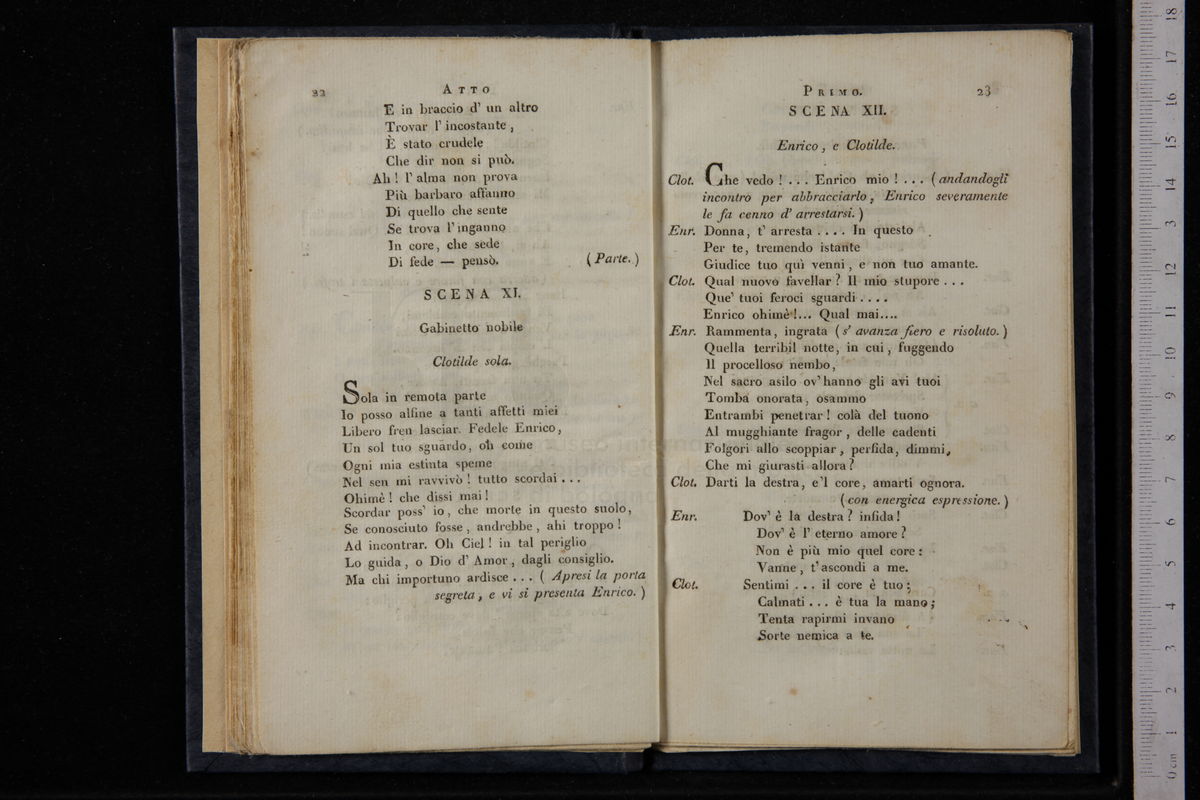 22
ATTO
E in braccio d' un altro
Trovar l' incostante,
È stato crudele
Che dir non si può.
Ah! l' alma non prova
Più barbaro affanno
Di quello che sente
Se trova l' inganno
In core, che sede
Di fede — pensò. (Parte.)
SCENA XI.
Gabinetto nobile
Clotilde sola.
Sola in remota parte
Io posso alfine a tanti affetti miei
Libero fren lasciar. Fedele Enrico,
Un sol tuo sguardo, oh come
Ogni mia estinta speme
Nel sen mi ravvivò! tutto scordai ...
Ohimè! che dissi mai!
Scordar poss' io, che morte in questo suolo,
Se conosciuto fosse, andrebbe, ahi troppo!
Ad incontrar. Oh Ciel! in tal periglio
Lo guida, o Dio d' Amor, dagli consiglio.
Ma chi importuno ardisce ... (Apresi la porta
segreta, e vi si presenta Enrico.)
PRIMO.
23
SCENA XII.
Enrico, e Clotilde.
Clot. Che vedo! ... Enrico mio! ... (andandogli
incontro per abbracciarlo, Enrico severamente
le fa cenno d' arrestarsi.)
Enr. Donna, t' arresta .... In questo
Per te, tremendo istante
Giudice tuo quì venni, e non tuo amante.
Clot. Qual nuovo favellar? Il mio stupore ...
Que' tuoi feroci sguardi ....
Enrico ohimè!... Qual mai....
Enr. Rammenta, ingrata (s' avanza fiero e risoluto.)
Quella terribil notte, in cui, fuggendo
Il procelloso nembo,
Nel sacro asilo ov' hanno gli avi tuoi
Tomba onorata, osammo
Entrambi penetrar! colà del tuono
Al mugghiante fragor, delle cadenti
Folgori allo scoppiar, perfida, dimmi,
Che mi giurasti allora?
Clot. Darti la destra, e'l core, amarti ognora.
(con energica espressione.)
Enr. Dov' è la destra? infida!
Dov' è l' eterno amore?
Non è più mio quel core:
Vanne, t' ascondi a me.
Clot. Sentimi ... il core è tuo;
Calmati ... è tua la mano;
Tenta rapirmi invano
Sorte nemica a te.
0 cm 1 2 3 4 5 6 7 8 9 10 11 12 13 14 15 16 17 18